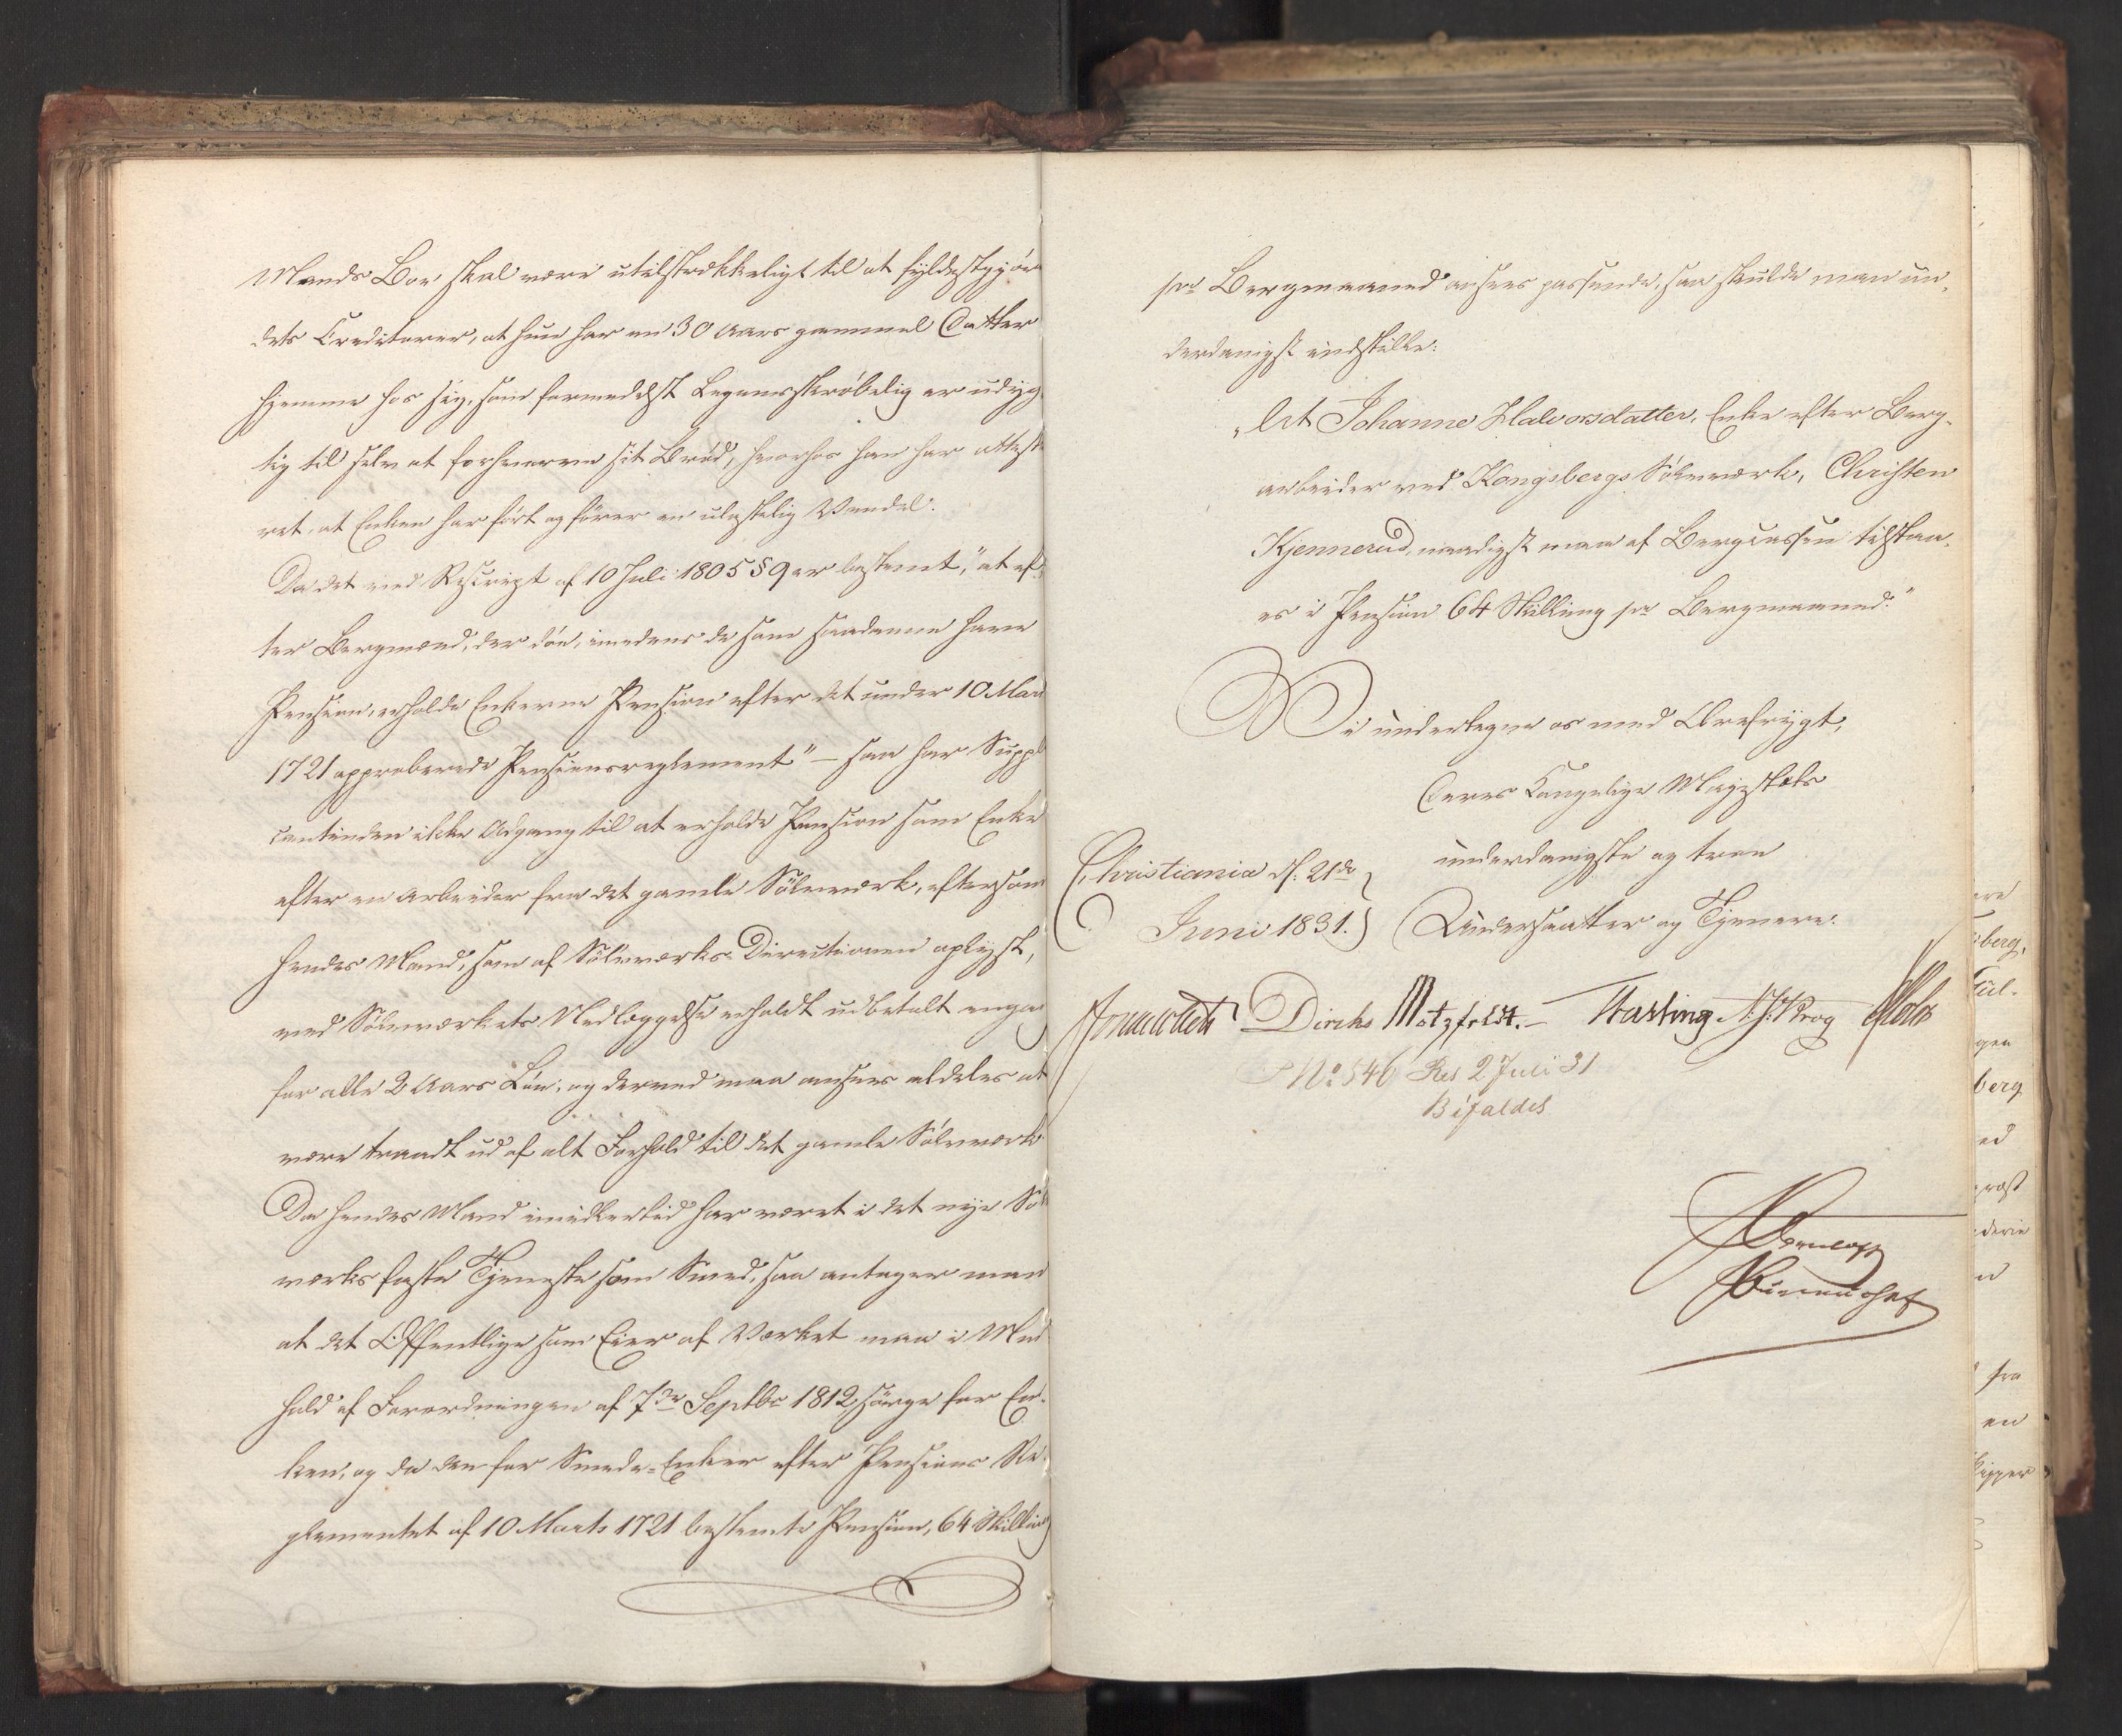 Mands Boe skal være utilstrækkeligt til at fyldestgjøre
dets Creditorer, at hun har en 30 Aars gammel Datter
hjemme hos sig, som formedelst Legemsskrøbelig er udyg
tig til selv at forhverve sit Brød, hvorhos han har atteste
ret, at Enken har ført og fører en ulastelig Vandel.
Da det ved Rescript af 10 Juli 1805 § 9 er bestemt, "at ef-
ter Bergmænd, der døe, imedens de som saadanne have
Pension, erholde Enkerne Pension efter det under 10 Mart
1721 approberede Pensionsreglement" – saa har Suppl
cantinden ikke Adgang til at erholde Pension som Enke
efter en Arbeider fra det gamle Sølvværk, eftersom
hendes Mand, som af Sølvværks-Directionen oplyst,
ved Sølvværkets Nedlæggelse erholdt udbetalt engang
for alle 2 Aars Løn, og derved maa ansees aldeles at
være traadt ud af alt Forhold til det gamle Sølvværk
Da hendes Mand imidlertid har været i det nye Søl
værks faste Tjeneste som Smed, saa antager man
at det Offentlige som Eier af Værket maa i Med
hold af Forordningen af 7de Septbr 1812 sørge for En-
ken, og da den for Smede-Enker efter Pensions Re-
glementet af 10 Marts 1721 bestemte Pension, 64 Skilling
pr Bergmaaned ansees passende, saa skulde man un-
derdanigst indstille:
"At Johanne Halvorsdatter, Enke efter Berg-
arbeider ved Kongsbergs Sølvværk, Christen
Kjennerud, naadigst maa af Bergcassen tilstaa-
es i Pension 64 Skilling pr Bergmaaned."
Vi undertegne os med Ærefrygt,
Deres Kongelige Majestæts
underdanigste og troe
Christiania d. 21de
Juni 1831.
Undersaatter og Tjenere.
Diriks Motzfeldt. – Fasting Krog Holst
No 546 Res 2 Juli 31
Bifaldes